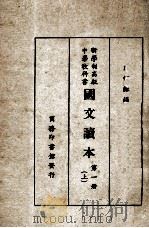 新學制高級
中學教科書
國文讀本 第一册
(上)
商務印書館發行